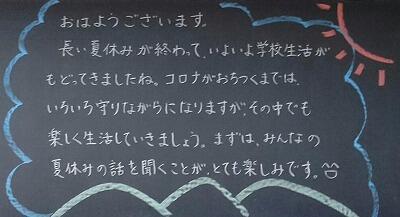 おはようございます。
長い夏休みが終わって、いよいよ学校生活が
もどってきましたね。コロナがおちつくまでは、
いろいろ守りながらになりますが、その中でも
楽しく生活していきましょう。まずは、みんなの
夏休みの話を聞くことが、とても楽しみです。